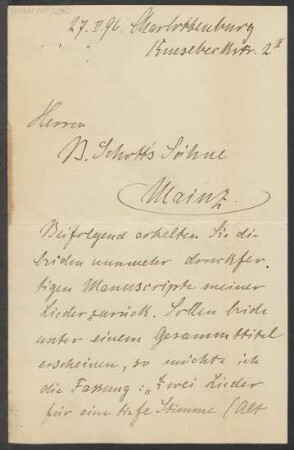 27. II. 96. Charlottenburg
Knesebeckstr. 2 II
Herren
B. Schott's Söhne
Mainz.
Beifolgend erhalten Sie die
beiden nunmehr druckfer-
tigen Manuscripte meiner
Lieder zurück. Sollen beide
unter einem Gesammttitel
erscheinen, so möchte ich
die Fassung: „Zwei Lieder
für eine tiefe Stimme (Alt